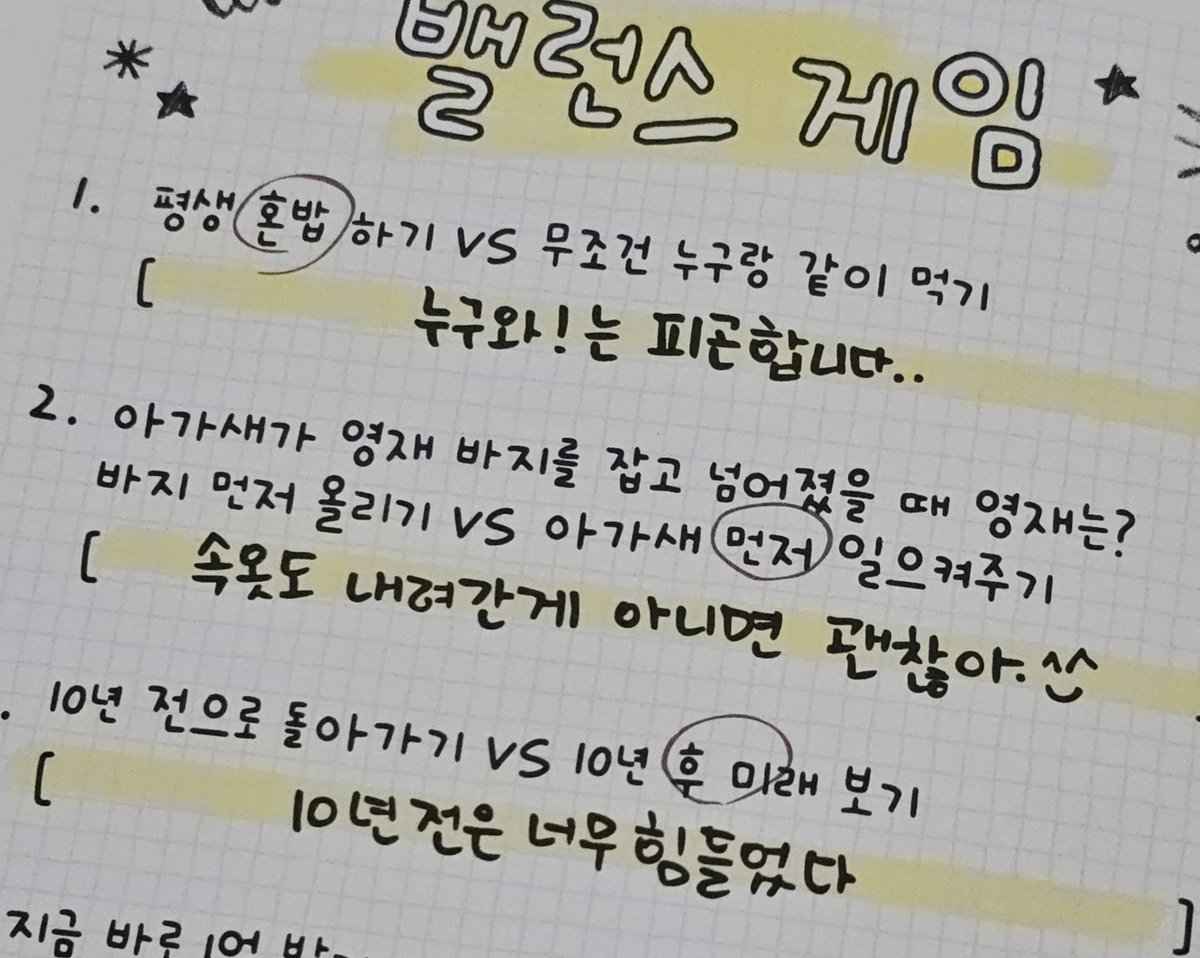 밸런스 게임
1. 평생 혼밥 하기 VS 무조건 누구랑 같이 먹기
[ 누구와!는 피곤합니다..
2. 아가새가 영재 바지를 잡고 넘어졌을 때 영재는?
바지 먼저 올리기 VS 아가새 먼저 일으켜주기
[ 속옷도 내려간게 아니면 괜찮아. ^^
. 10년 전으로 돌아가기 VS 10년 후 미래 보기
[ 10년전은 너무 힘들었다 ]
지금 바로